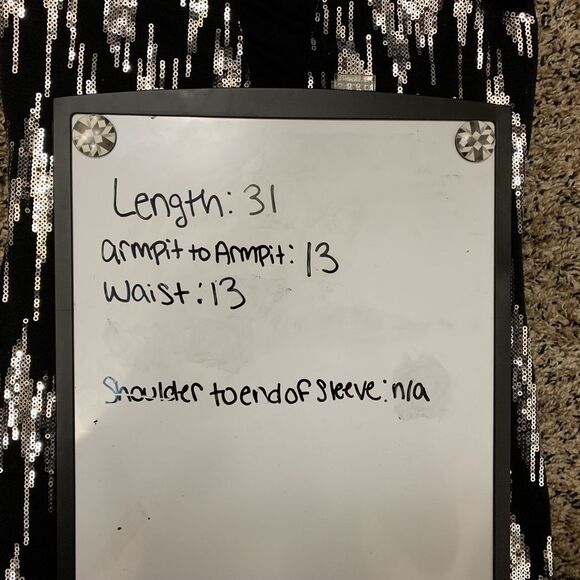 Length: 31
armpit to Armpit: 13
Waist: 13
Shoulder to end of Sleeve: n/a